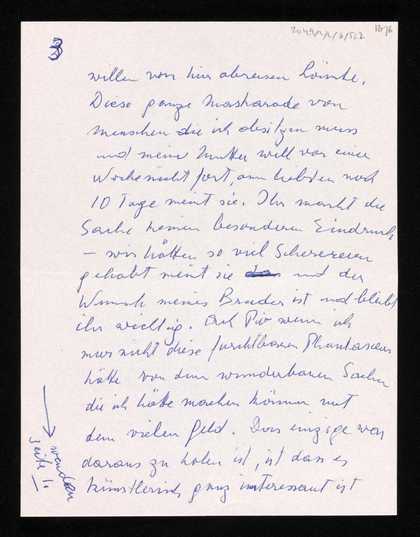 3
willen von hier abreisen könnte.
Diese ganze Maskarade von
Menschen die ich absitzen muss
und meine Mutter will vor einer
Woche nicht fort, am liebsten noch
10 Tage meint sie. Ihr macht die
Sache keinen besonderen Eindruck
– wir hätten so viel Scherereien
gehabt meint sie und der
Wunsch meines Bruder ist und bleibt
ihr wichtig. Ach Piv wenn ich
nur nicht diese furchtbaren Phantasien
hätte von den wunderbaren Sachen
die ich hätte machen können mit
dem vielen Geld. Das einzige was
daraus zu holen ist, ist dass es
künstlerisch ganz interessant ist
wenden
Seite 1.